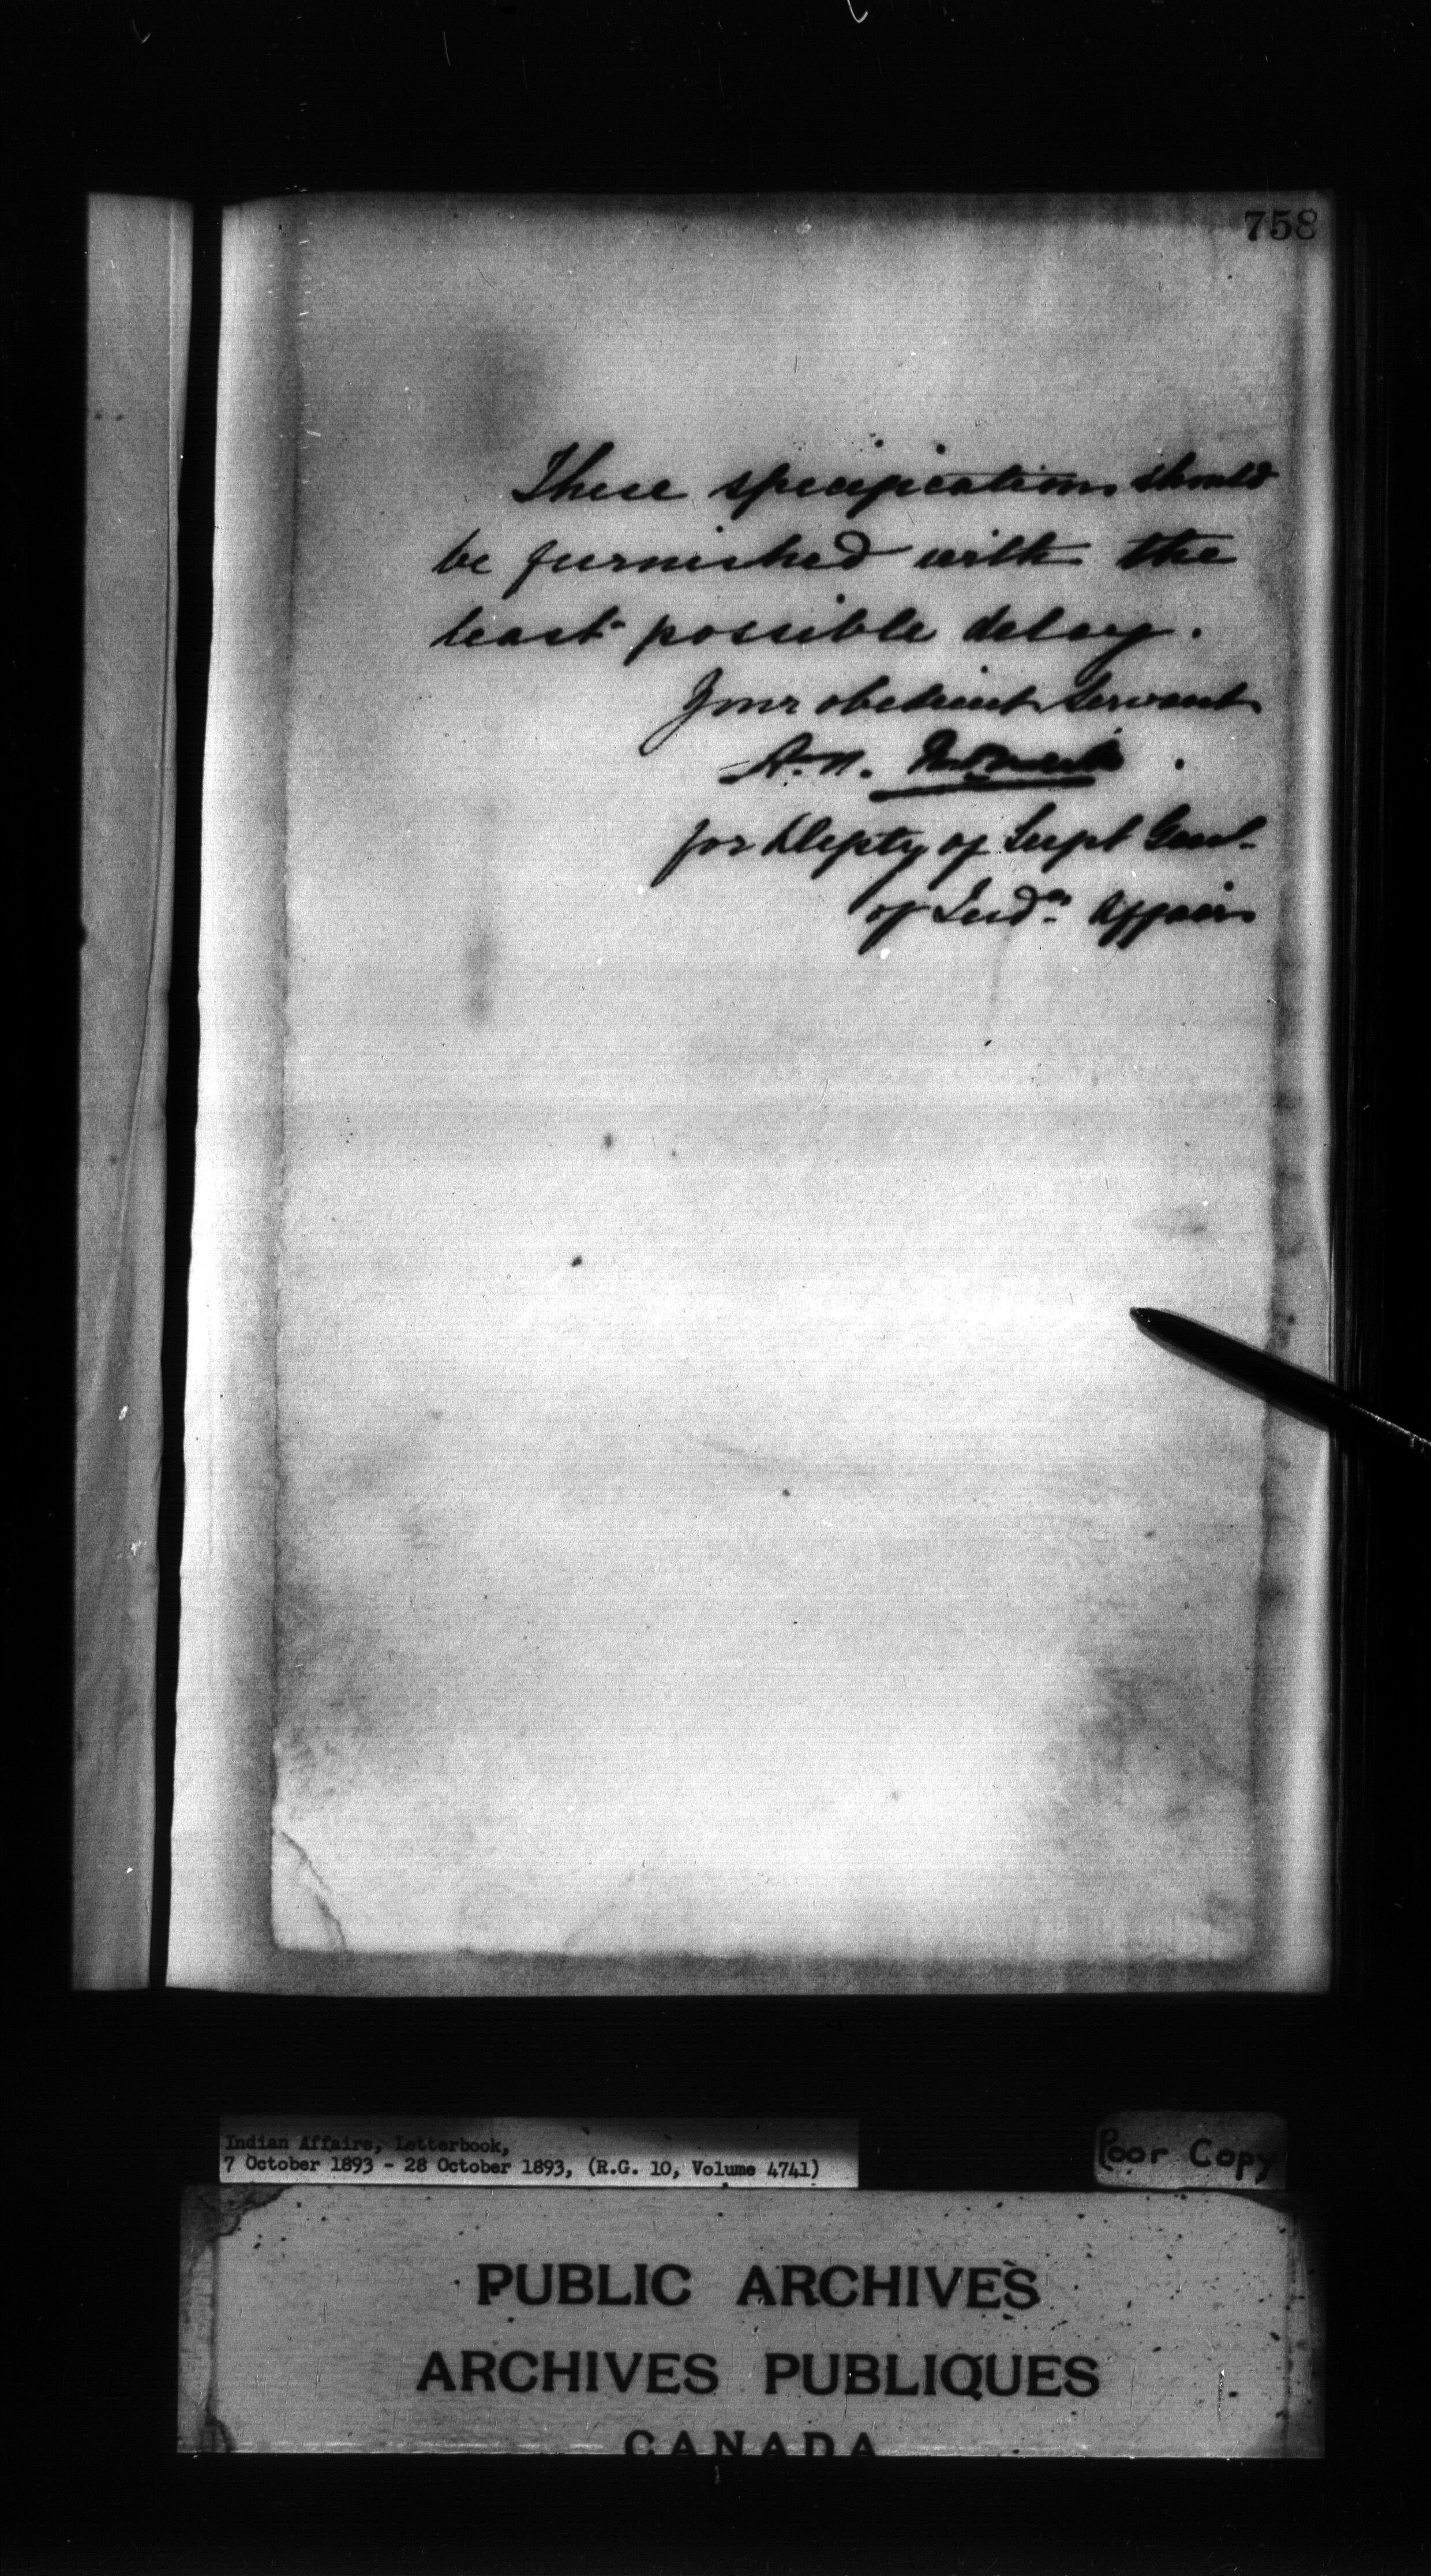 758
These specifications should
be furnished with the
least possible delay.
Your obedient Servant
A. N.
for Depty of Supt Genl.
of Indn. Affairs
Indian Affairs, Letterbook,
7 October 1893 - 28 October 1893, (R.G. 10, Volume 4741)
Poor Copy
PUBLIC ARCHIVES
ARCHIVES PUBLIQUES
CANADA